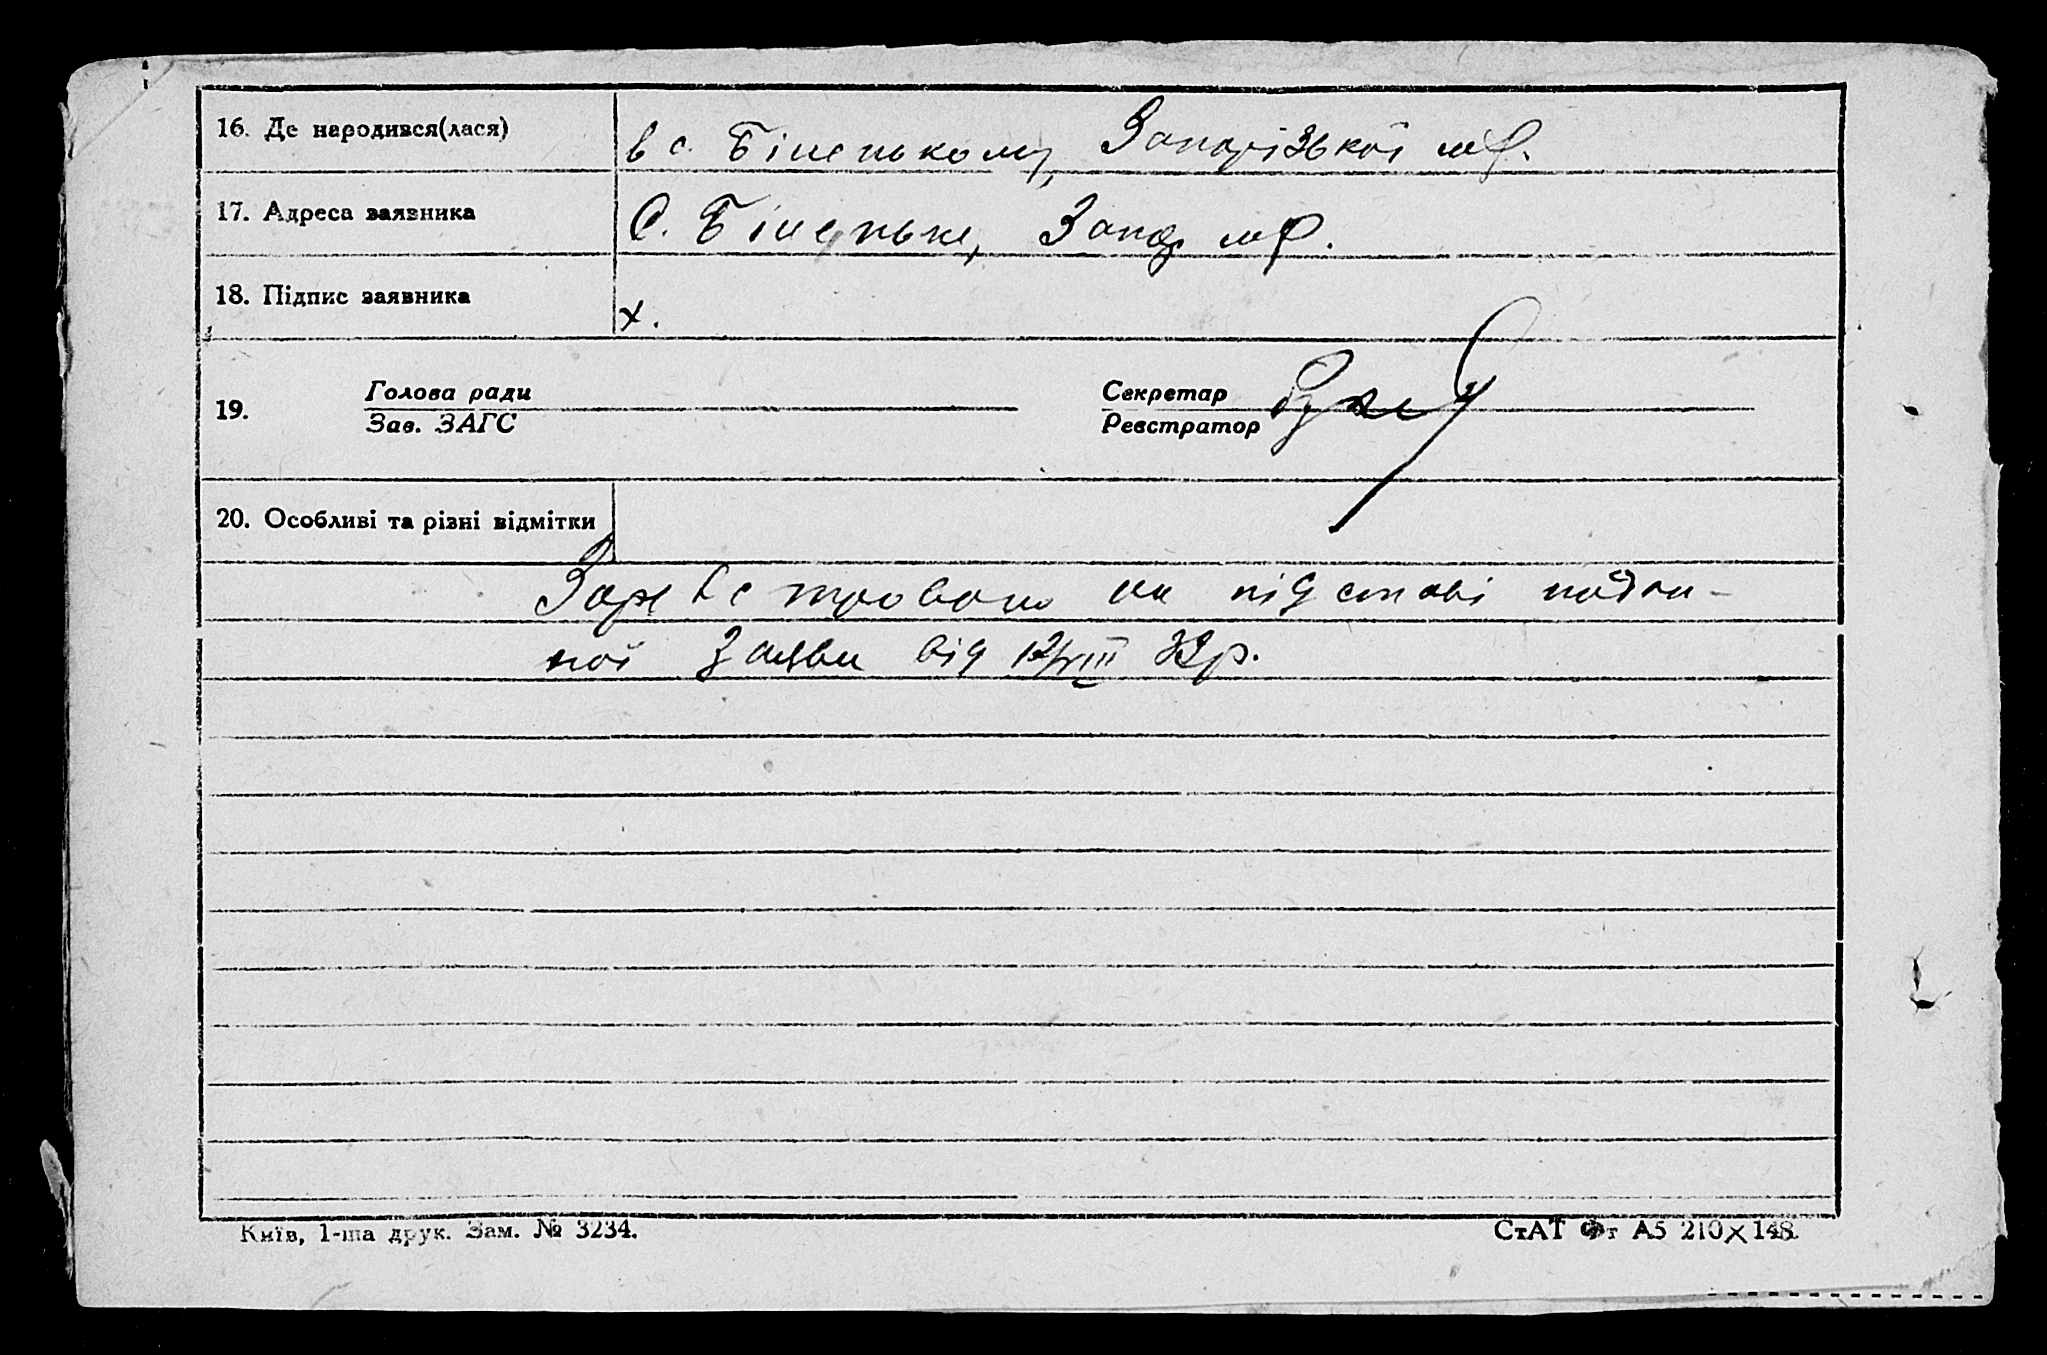 16. Де народився(лася) в с. Біленькому, Запорізької м/р.
17. Адреса заявника С. Біленьке, Запор. м/р.
18. Підпис заявника х.
19. Голова ради Секретар
Зав. ЗАГС Реєстратор
20. Особливі та різні відмітки
Зареєстровано на підставі подан-
ної заяви від 12/VIII 32 р.
Київ, 1-ша друк. Зам. № 3234. СтАТ Фт А5 210×148.